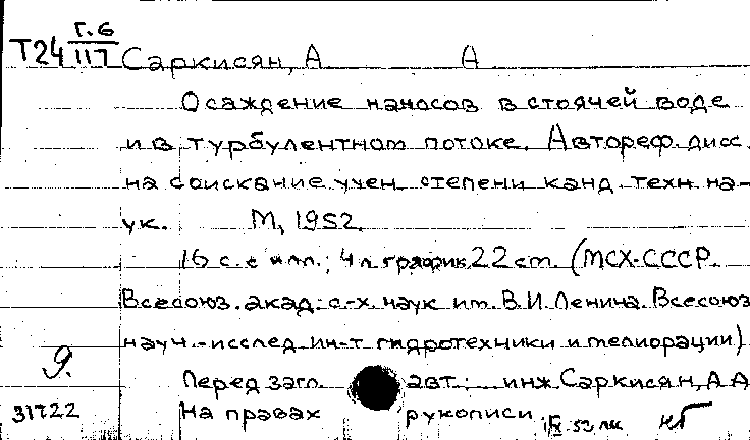 Г.6
Т24 117 Саркисян, А А
Осаждение наносов в стоячей воде
и в турбулентном потоке. Автореф. дисс.
на соискание учен. степени канд. техн. на-
ук. М, 1952.
16 с. с илл.; 4 л. график. 22 см. (МСХ СССР.
Всесоюз. акад. с-х. наук им. В.И. Ленина. Всесоюз
науч.-исслед. ин-т гидротехники и мелиорации)
9.
Перед загл. авт.: инж. Саркисян, А А
31722 На правах рукописи